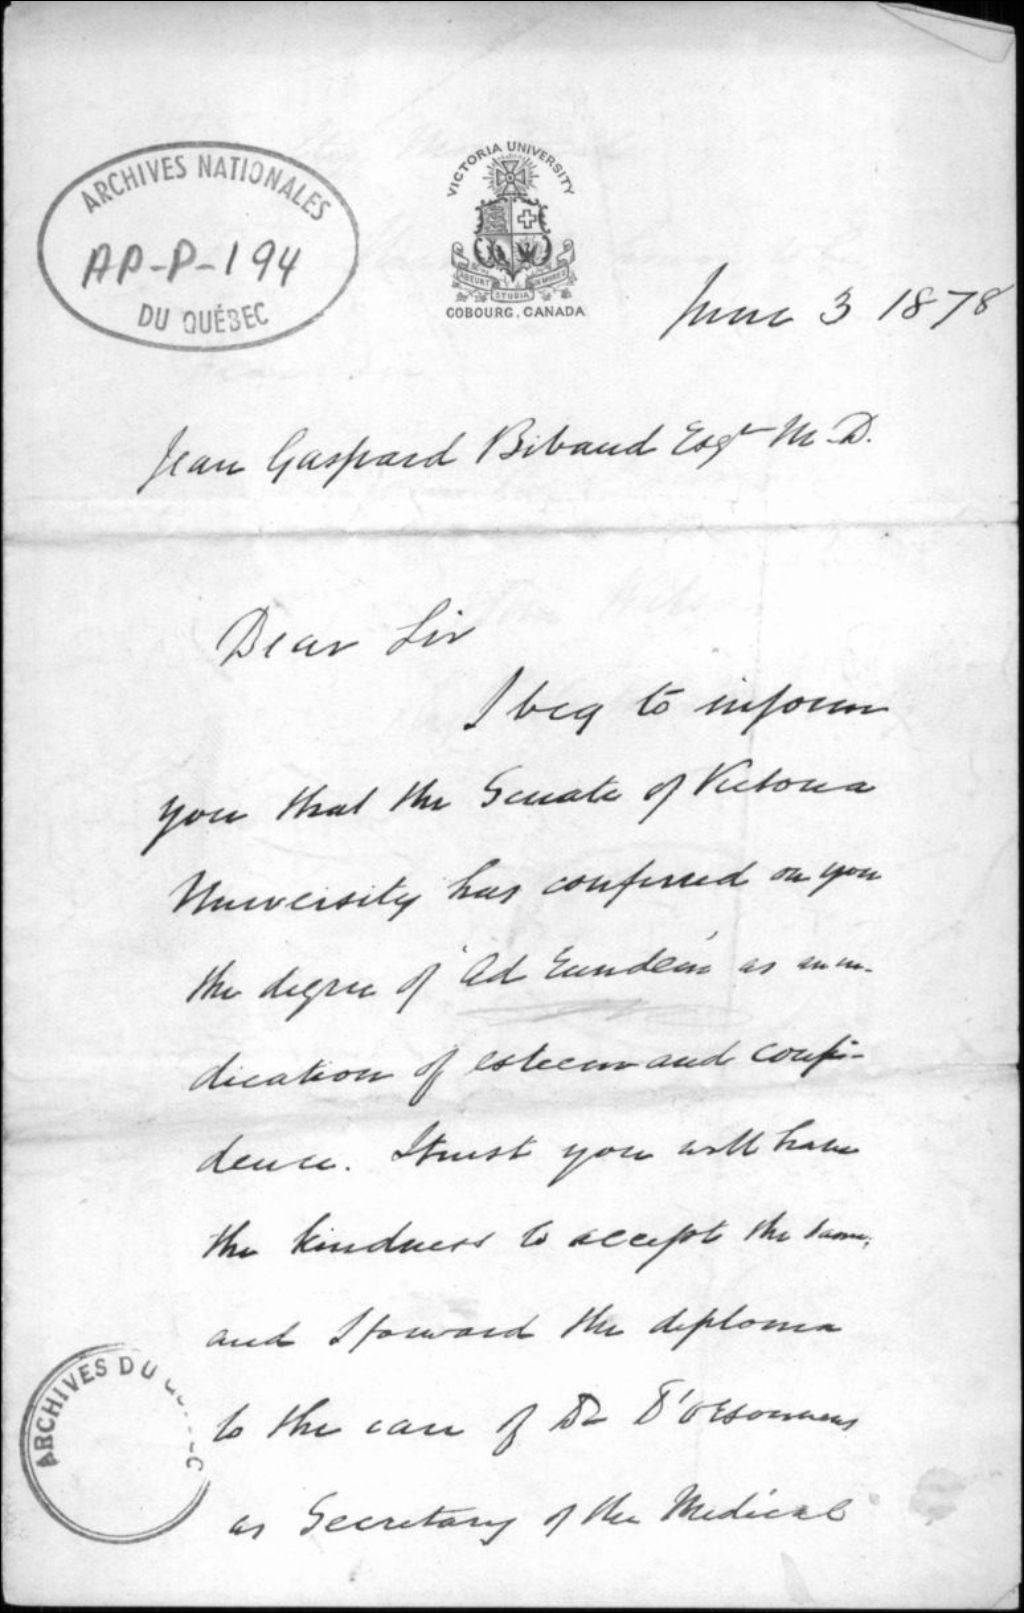 ARCHIVES NATIONALES
AP-P-194
DU QUÉBEC
VICTORIA UNIVERSITY
ABEUNT STUDIA IN MORES
COBOURG, CANADA
June 3 1878
Jean Gaspard Bibaud Esqr M.D.
Dear Sir
I beg to inform
you that the Senate of Victoria
University has conferred on you
the degree of "Ad Eundem" as an in-
dication of esteem and confi-
dence. I trust you will have
the kindness to accept the same,
and I forward the diploma
to the care of Dr D'Orsonnens
as Secretary of the Medical
ARCHIVES DU